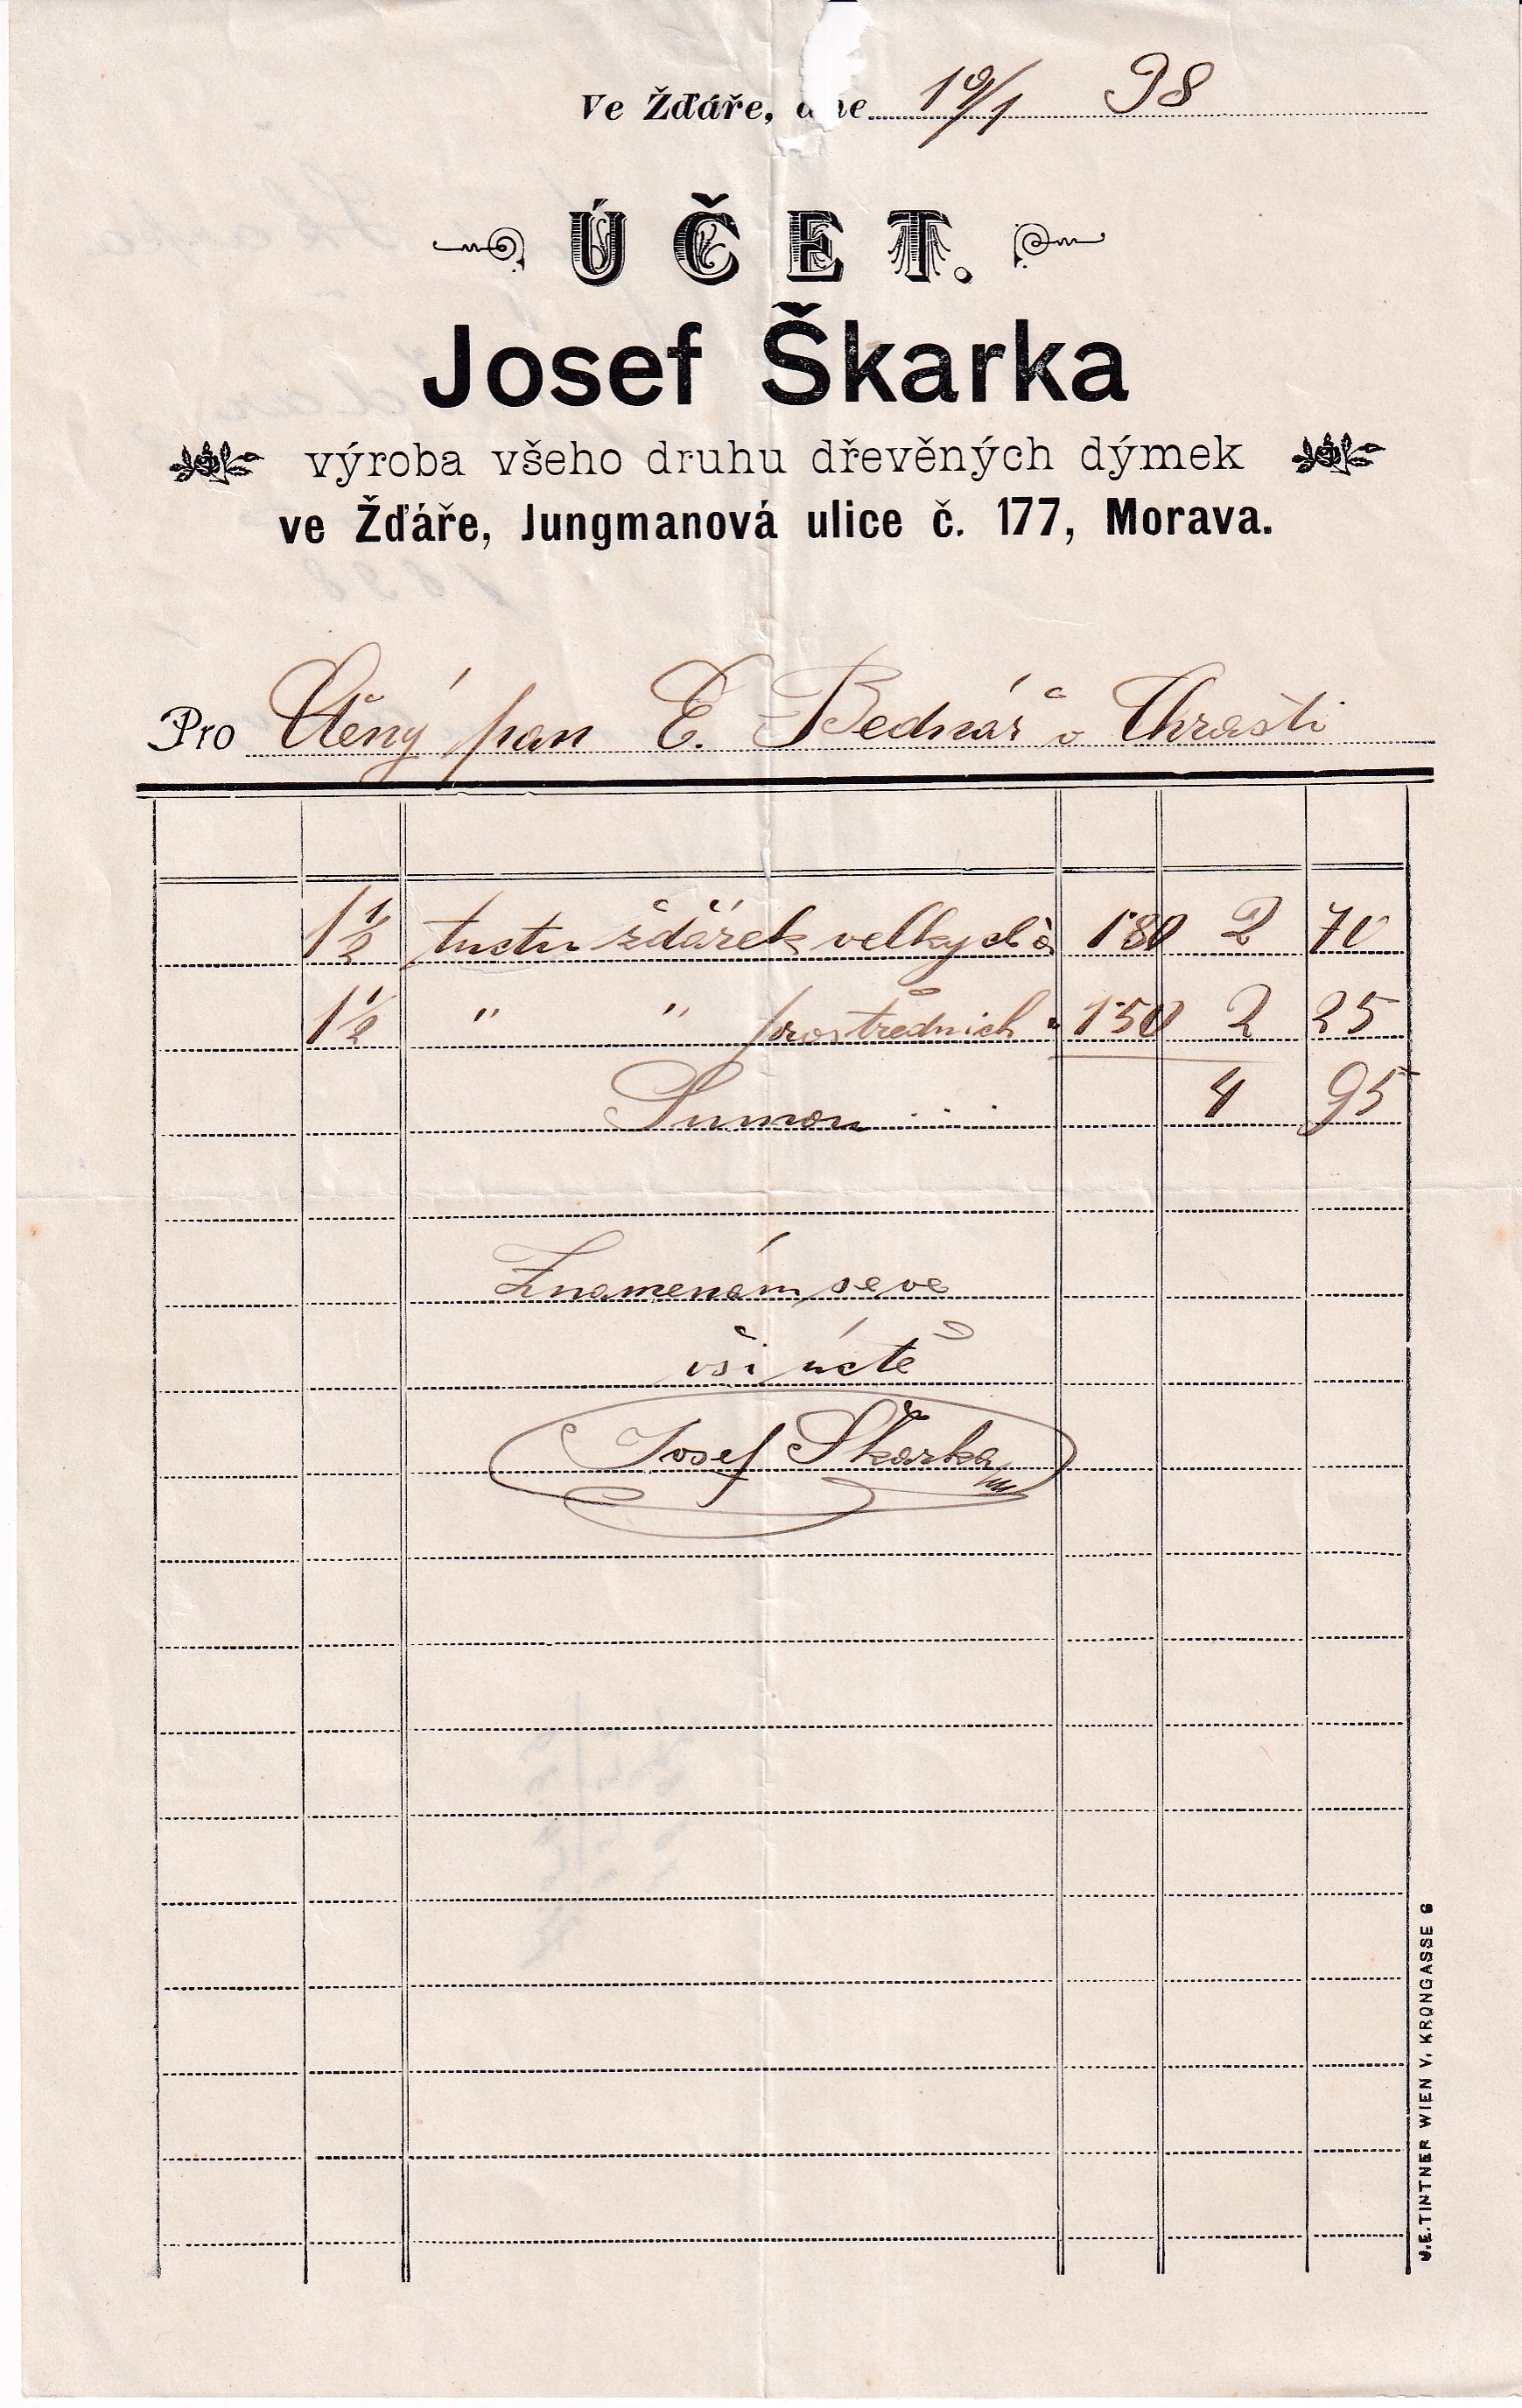 Ve Žďáře, dne 19/1 98
ÚČET.
Josef Škarka
výroba všeho druhu dřevěných dýmek
ve Žďáře, Jungmanová ulice č. 177, Morava.
Pro Ctěný pan E. Bednář v Chrasti
1 1/2 tuctu žďárek velkych à 1·80 2 70
1 1/2 " " prostřednich " 1·50 2 25
Sumou..... 4 95
Znamenám se ve
vší úctě
Josef Škarka
J.E. TINTNER WIEN V. KRONGASSE 6